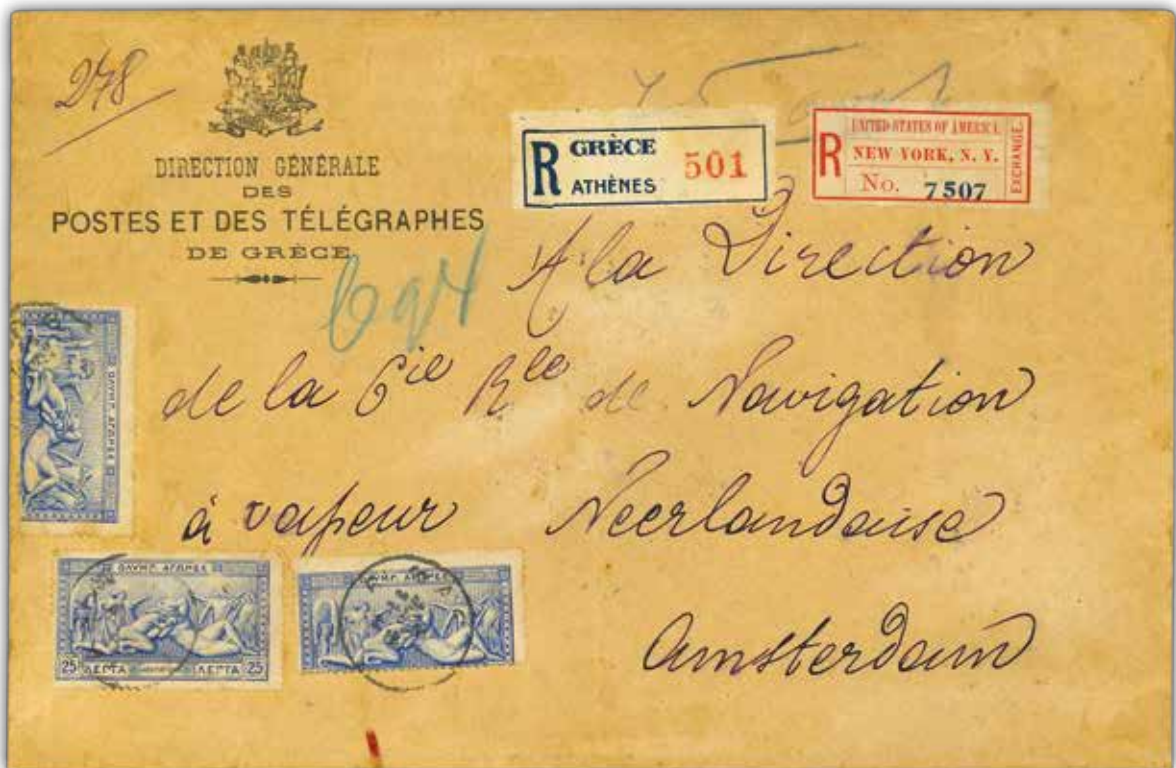 278
DIRECTION GÉNÉRALE
DES
POSTES ET DES TÉLÉGRAPHES
DE GRÈCE
R GRÈCE
ATHÈNES 501
R UNITED STATES OF AMERICA.
NEW YORK, N. Y.
No. 7507
EXCHANGE.
694
A la Direction
de la Cie Rle de Navigation
à vapeur Neerlandaise
Amsterdam
ΟΛΥΜΠ. ΑΓΩΝΕΣ
ΟΛΥΜΠ. ΑΓΩΝΕΣ
25 ΛΕΠΤΑ ΛΕΠΤΑ 25
ΟΛΥΜΠ. ΑΓΩΝΕΣ